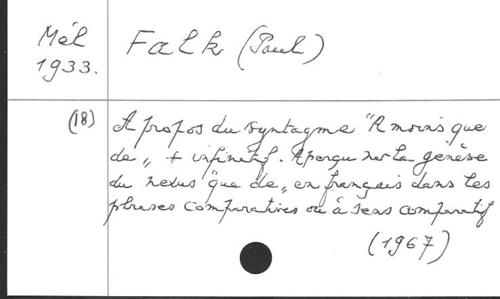 Mél
1933.
Falk (Paul)
(18)
A propos du syntagme "A moins que
de„ + infinitif. Aperçu sur la genèse
du nexus "que de„ en français dans les
phrases comparatives ou à sens comparatif
(1967)